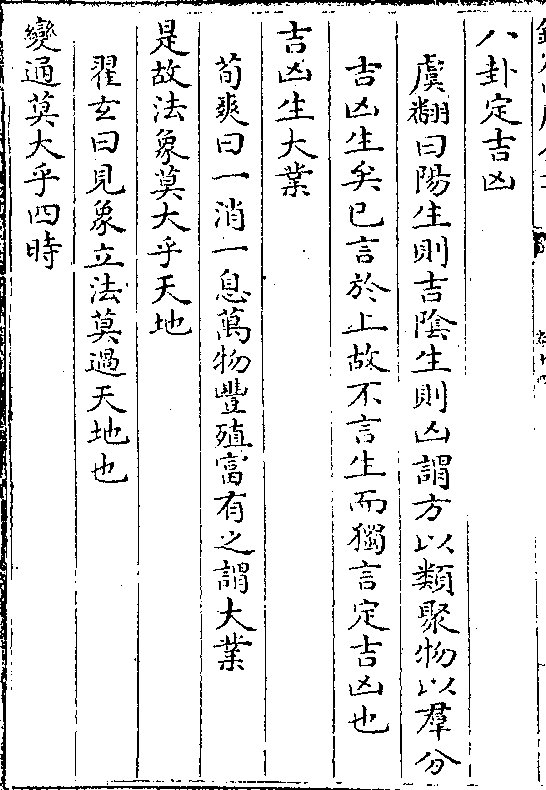 八卦定吉凶
虞翻曰陽生則吉陰生則凶謂方以類聚物以羣分
吉凶生矣已言於上故不言生而獨言定吉凶也
吉凶生大業
荀爽曰一消一息萬物豐殖富有之謂大業
是故法象莫大乎天地
翟玄曰見象立法莫過天地也
變通莫大乎四時